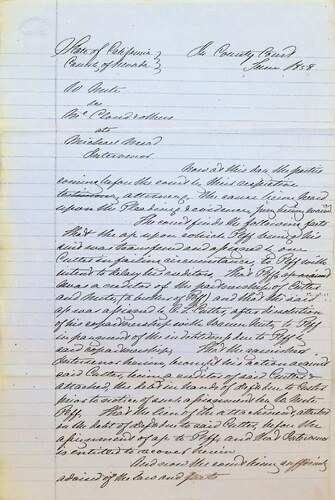 State of California } In County Court
County of Nevada } June 1858
W Nute
vs
McCloud &
at
Michael Ward
Intervenor
Now at this day the parties
coming before the court by their respective
attorneys. The cause been heard
upon the Pleadings & evidence, Jury being waived
The court finds the following facts
That the ap upon which Plff brings this
suit was transferred and assigned by one
Cutter in failing circumstances to Plff with
intent to delay his creditors. That Plff
was a creditor of the partnership of Cutter
and Nute, (a brother of Plff) and that the said
ap was assigned by Cutter, after dissolution
of his copartnership with Nute, to Plff
in payment of the indebtedness due to Plff by
said copartnership. That the
Intervenor herein, brought his action against
said Cutter, being a creditor of said Cutter &
attached, the debt in hands of defdts to Cutter
prior to notice of such assignment by W Nute
Plff. That the lien of the attachment attaches
in the debt of defdts to said Cutter, before the
assignment of ap to Plff, and that Intervenor
is entitled to recover herein
And now the court being sufficiently
advised of the law and facts